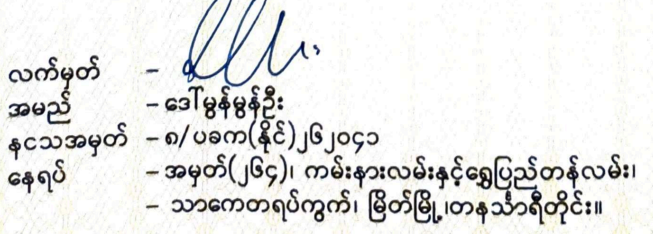 လက်မှတ် -
အမည် - ဒေါ်မွန်မွန်ဦး
နငသအမှတ် - ၈/ပခက(နိုင်)၂၆၂၀၄၁
နေရပ် - အမှတ်(၂၆၄)၊ ကမ်းနားလမ်းနှင့်ရွှေပြည်တန်လမ်း၊
- သာကေတရပ်ကွက်၊ မြိတ်မြို့၊တနင်္သာရီတိုင်း။